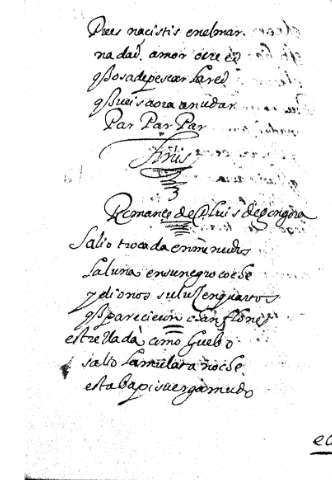 Pues nacistis en el mar
nadad, amor o creed
q̃ os a de pescar la red
q̃ veis aora anudar
Par Par Par
Finis
3
Romance de D. Luis de gongora
Salio trocada en menudos
la luna en su negro coche
y dionos su luz en quartos
q̃ parecieron
estrellada como Guebo
salio la mulata noche
estaba pisuerga mudo